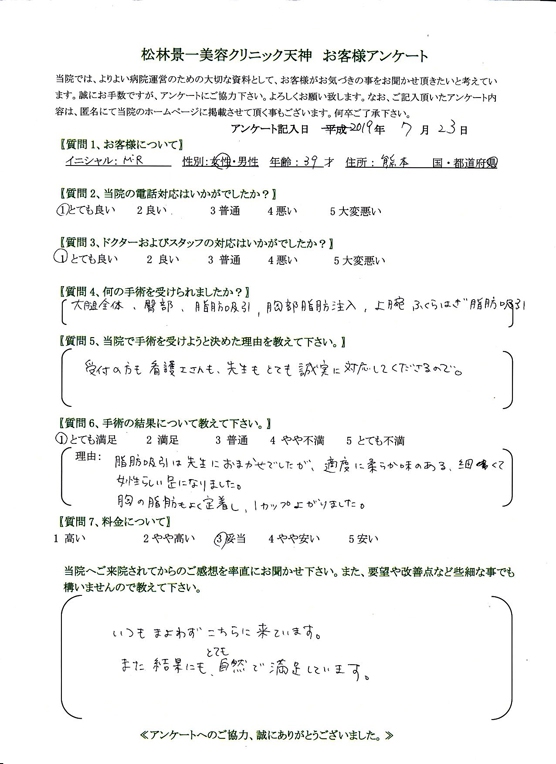 松林景一美容クリニック天神 お客様アンケート
当院では、よりよい病院運営のための大切な資料として、お客様がお気づきの事をお聞かせ頂きたいと考えてい
ます。誠にお手数ですが、アンケートにご協力下さい。よろしくお願い致します。なお、ご記入頂いたアンケート内
容は、匿名にて当院のホームページに掲載させて頂く事もございます。何卒ご了承下さい。
アンケート記入日 平成 2019年 7月 23日
【質問1、お客様について】
イニシャル: M.R 性別:女性・男性 年齢:39才 住所:熊本 国・都道府県
【質問2、当院の電話対応はいかがでしたか?】
1とても良い 2良い 3普通 4悪い 5大変悪い
【質問3、ドクターおよびスタッフの対応はいかがでしたか?】
1とても良い 2良い 3普通 4悪い 5大変悪い
【質問4、何の手術を受けられましたか?】
大腿全体、臀部、脂肪吸引, 胸部脂肪注入, 上腕 ふくらはぎ 脂肪吸引
【質問5、当院で手術を受けようと決めた理由を教えて下さい。】
受付の方も看護士さんも、先生もとても誠実に対応してくださるので。
【質問6、手術の結果について教えて下さい。】
1とても満足 2満足 3普通 4やや不満 5とても不満
理由: 脂肪吸引は先生におまかせでしたが、適度に柔らか味のある、細くて
女性らしい足になりました。
胸の脂肪もよく定着し、1カップ上がりました。
【質問7、料金について】
1高い 2やや高い 3妥当 4やや安い 5安い
当院へご来院されてからのご感想を率直にお聞かせ下さい。また、要望や改善点など些細な事でも
構いませんので教えて下さい。
いつもまよわずこちらに来ています。
また結果にも、とても自然で満足しています。
≪アンケートへのご協力、誠にありがとうございました。≫